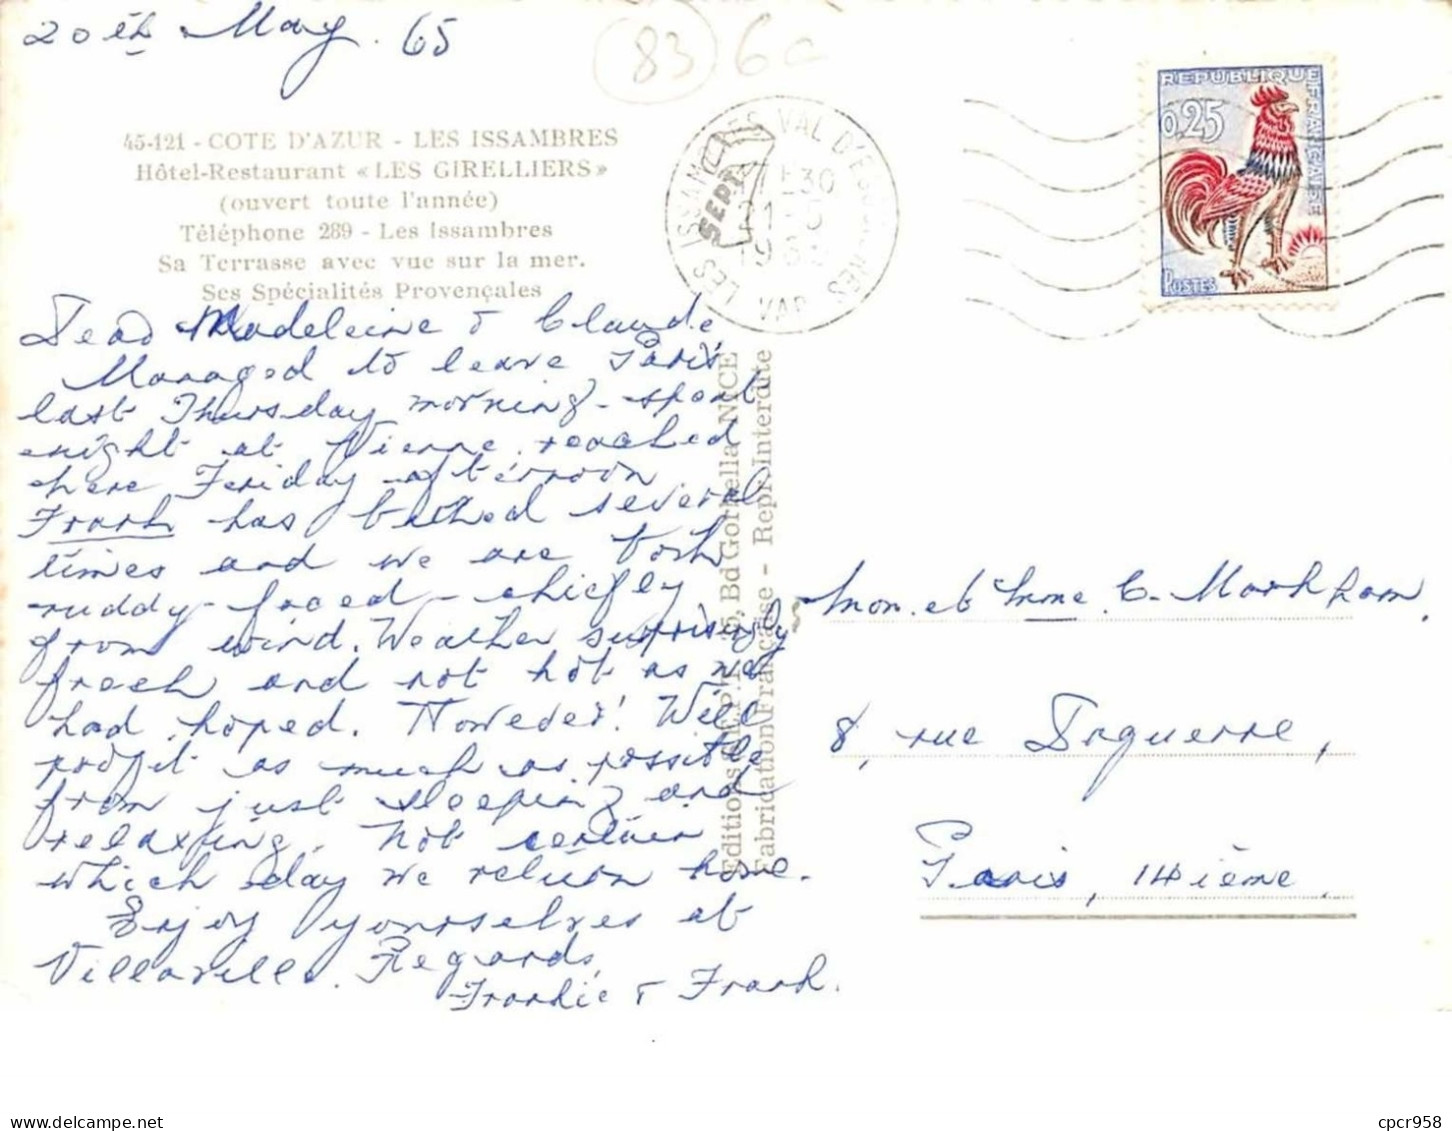 20th May. 65
83 6c
45-121 - COTE D'AZUR - LES ISSAMBRES
Hôtel-Restaurant «LES GIRELLIERS»
(ouvert toute l'année)
Téléphone 289 - Les Issambres
Sa Terrasse avec vue sur la mer.
Ses Spécialités Provençales
LES ISSAMBRES VAL D'ESQUIERES
VAR
REPUBLIQUE FRANÇAISE
0,25
POSTES
Dear Madeleine & Claude,
Managed to leave Paris
last Thursday morning - spent
night at Vienne, reached
here Friday afternoon.
Frank has bathed several
times and we are both
ruddy-faced - chiefly
from wind. Weather surprisingly
fresh and not hot as we
had hoped. However! Will
profit as much as possible
from just sleeping and
relaxing. Not certain
which day we return home.
Enjoy yourselves at
Villerville. Regards,
Frankie & Frank.
Mon. et Mme. C. Markham,
8, rue Daguerre,
Paris, 14ième.
Bd Gorbella NICE
Fabrication Française - Repr. Interdite
cpcr958